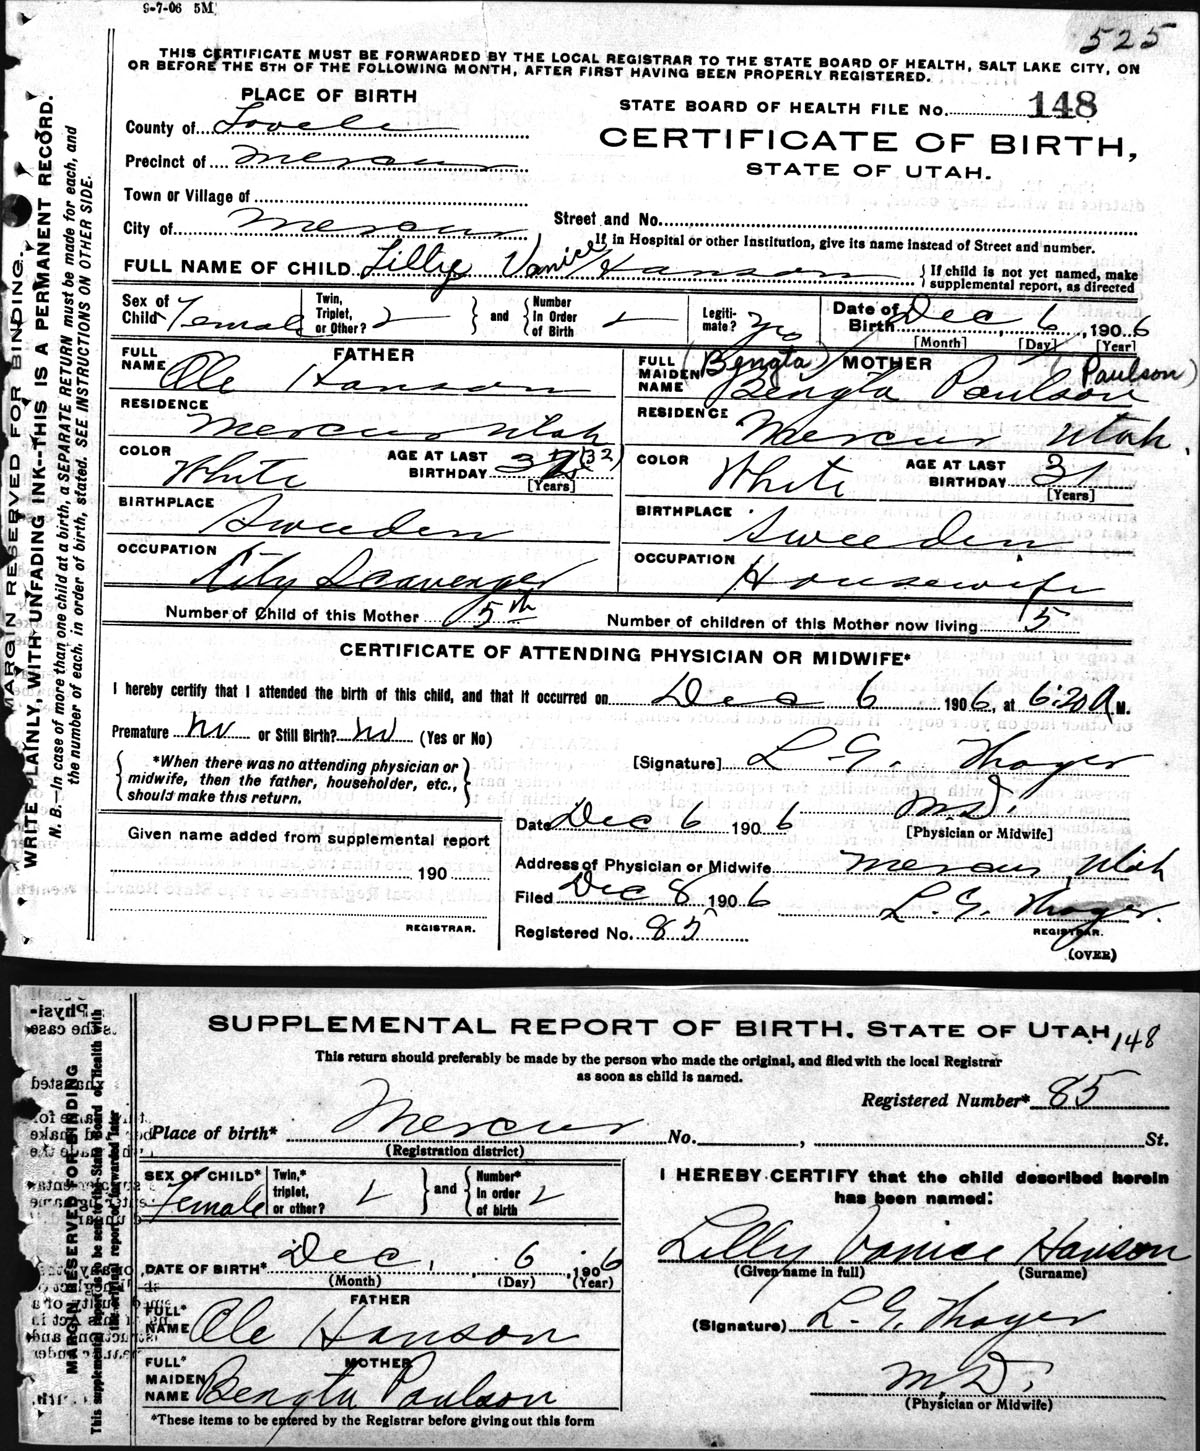 9-7-06 5M
525
THIS CERTIFICATE MUST BE FORWARDED BY THE LOCAL REGISTRAR TO THE STATE BOARD OF HEALTH, SALT LAKE CITY, ON
OR BEFORE THE 5TH OF THE FOLLOWING MONTH, AFTER FIRST HAVING BEEN PROPERLY REGISTERED.
MARGIN RESERVED FOR BINDING.
WRITE PLAINLY, WITH UNFADING INK--THIS IS A PERMANENT RECORD.
N. B.—In case of more than one child at a birth, a SEPARATE RETURN must be made for each, and
the number of each, in order of birth, stated. SEE INSTRUCTIONS ON OTHER SIDE.
PLACE OF BIRTH
STATE BOARD OF HEALTH FILE No. 148
County of Tooele
CERTIFICATE OF BIRTH,
Precinct of Mercur
STATE OF UTAH.
Town or Village of
City of Mercur
Street and No.
If in Hospital or other Institution, give its name instead of Street and number.
FULL NAME OF CHILD Lilly Vanice Hanson { If child is not yet named, make
supplemental report, as directed
Sex of Child Female
Twin, Triplet, or Other? 2 } and { Number In Order of Birth 2
Legiti-mate?
Date of Birth Dec 6, 1906
[Month] [Day] [Year]
FATHER
FULL NAME Ole Hanson
MOTHER
FULL MAIDEN NAME (Bengta) Bengta Paulson (Paulson)
RESIDENCE Mercur Utah
RESIDENCE Mercur Utah.
COLOR White AGE AT LAST BIRTHDAY 32 (32)
[Years]
COLOR White AGE AT LAST BIRTHDAY 31
[Years]
BIRTHPLACE Sweeden
BIRTHPLACE Sweeden
OCCUPATION City Scavenger
OCCUPATION Housewife
Number of Child of this Mother 5th Number of children of this Mother now living 5
CERTIFICATE OF ATTENDING PHYSICIAN OR MIDWIFE*
I hereby certify that I attended the birth of this child, and that it occurred on Dec 6 1906, at 6:20 A M.
Premature no or Still Birth? no (Yes or No)
{ *When there was no attending physician or
midwife, then the father, householder, etc.,
should make this return. }
[Signature] L. G. Thayer
M.D.
[Physician or Midwife]
Date Dec 6 1906
Given name added from supplemental report
190
REGISTRAR.
Address of Physician or Midwife Mercur Utah
Filed Dec 8 1906 L. G. Thayer.
REGISTRAR.
Registered No. 85
(OVER)
SUPPLEMENTAL REPORT OF BIRTH, STATE OF UTAH 148
This return should preferably be made by the person who made the original, and filed with the local Registrar
as soon as child is named.
MARGIN RESERVED FOR BINDING
This supplemental report to be sent to the State Board of Health with
the original report or forwarded later
Registered Number* 85
Place of birth* Mercur No. , St.
(Registration district)
SEX OF CHILD* Female
Twin,* triplet, or other? 2 } and { Number* in order of birth 2
I HEREBY CERTIFY that the child described herein
has been named:
Lilly Vanice Hanson
(Given name in full) (Surname)
DATE OF BIRTH* Dec, 6, 1906
(Month) (Day) (Year)
FATHER
FULL* NAME Ole Hanson
(Signature) L. G. Thayer
MOTHER
FULL* MAIDEN NAME Bengta Paulson
M.D.
(Physician or Midwife)
*These items to be entered by the Registrar before giving out this form